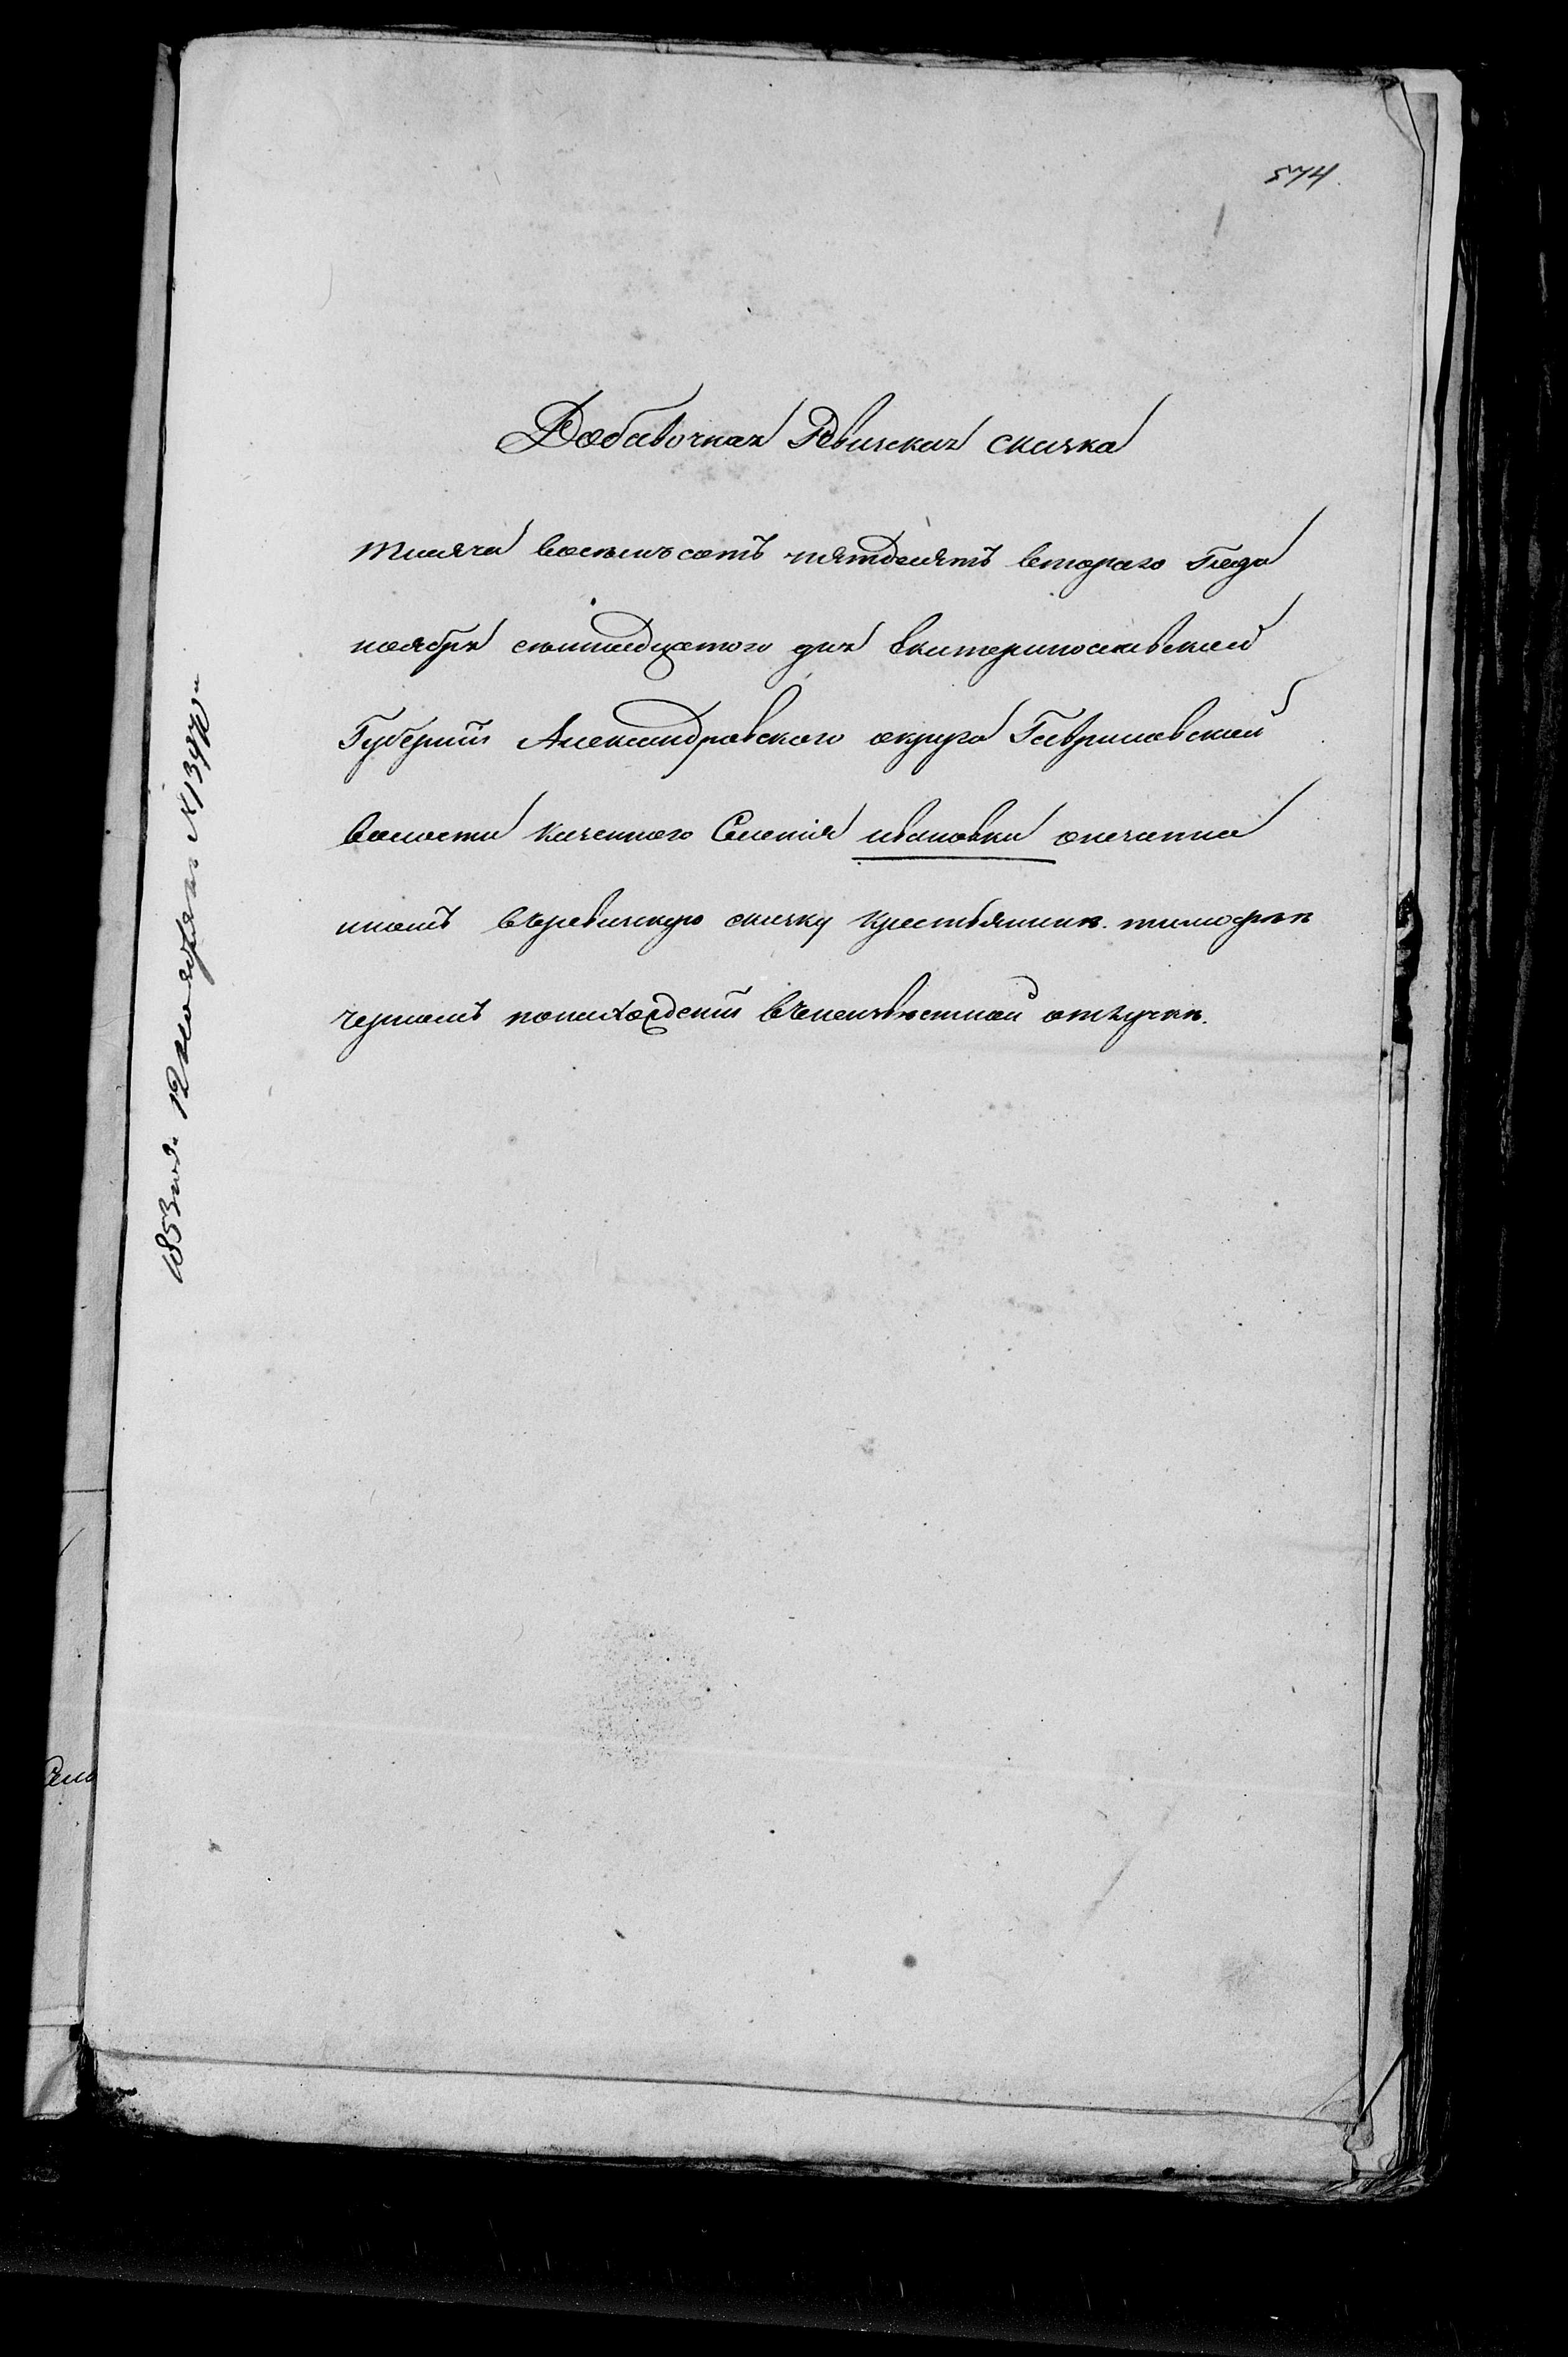 574.
Добавочная Ревизская сказка
тысяча восемьсотъ пятдесятъ втораго Года
ноября семнадцатого дня Екатеринославской
Губерніи Александровского округа Гавриловской
волости казенного Селенія ивановки
въревизскую сказку крестьянина тимофея
понахожденіи въ неизвестной отлучки.
1853 года 12 ноября №